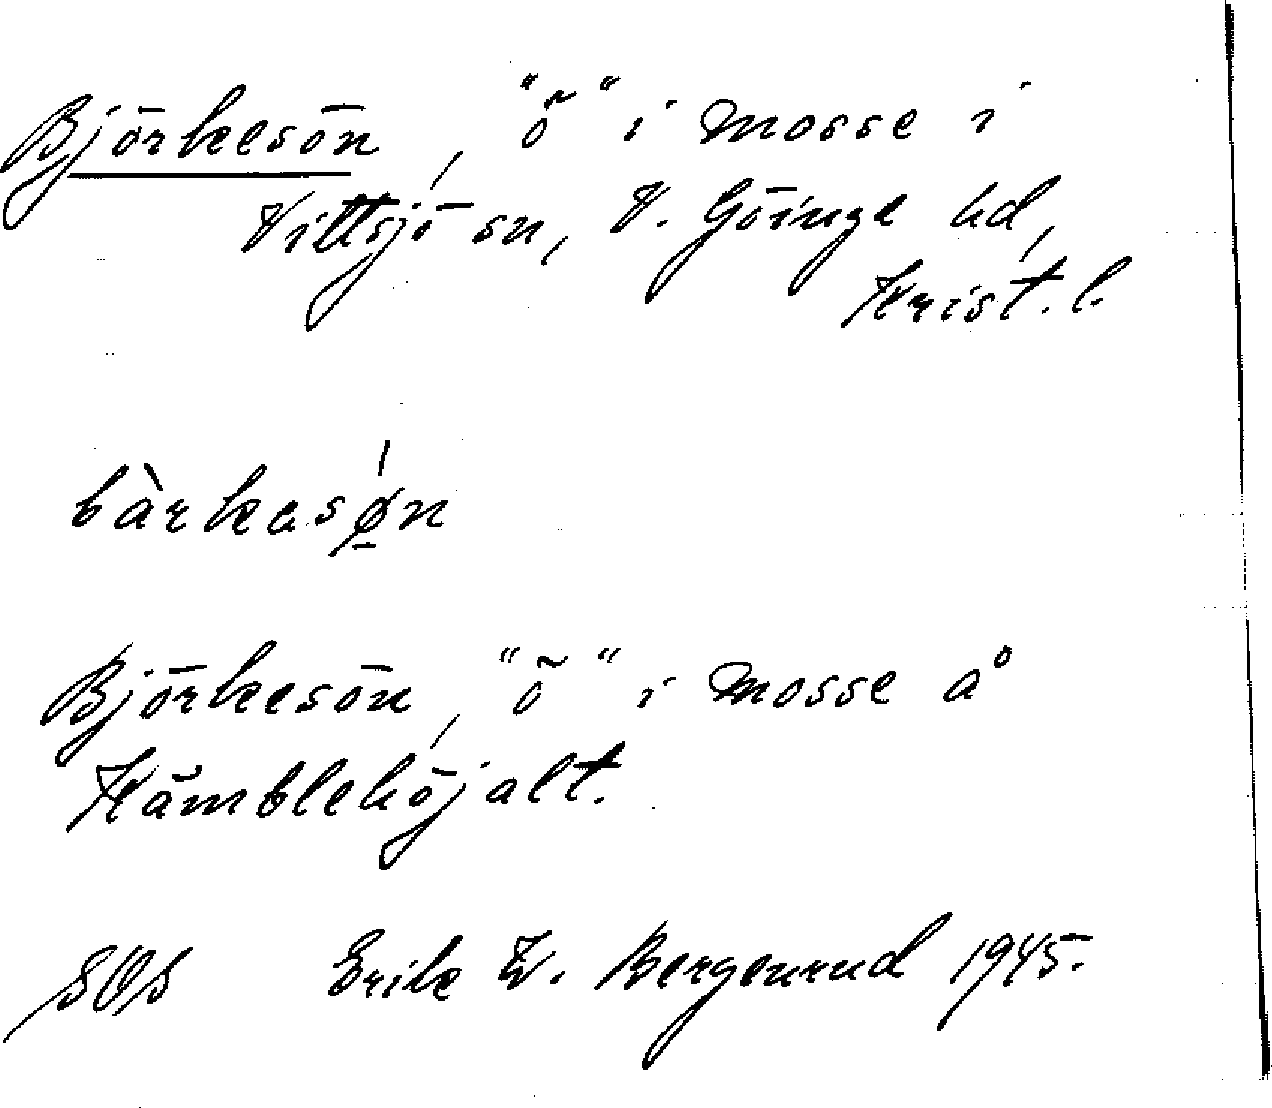 Björkesön, "ö" i mosse i
Vittsjö sn, V. Göinge hd,
Krist. l.
bàrkasǿ̱n
Björkesön, "ö" i mosse å
Hämblehöjalt.
SOS Erik W. Bergenrud 1945.